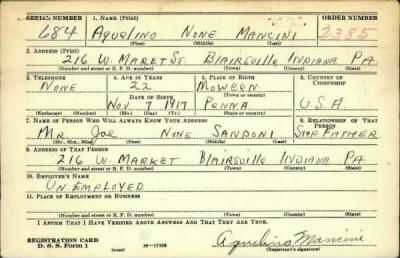 SERIAL NUMBER 1. NAME (Print) ORDER NUMBER
684 AQUELINO NONE MANCINI 2385
(First) (Middle) (Last)
2. ADDRESS (Print)
216 W. MARET ST. BLAIRSVILLE INDIANA PA.
(Number and street or R. F. D. number) (Town) (County) (State)
3. TELEPHONE 4. AGE IN YEARS 5. PLACE OF BIRTH 6. COUNTRY OF CITIZENSHIP
NONE 22 MOWERN
DATE OF BIRTH (Town or county)
NOV 7 1917 PENNA U.S.A
(Exchange) (Number) (Mo.) (Day) (Yr.) (State or country)
7. NAME OF PERSON WHO WILL ALWAYS KNOW YOUR ADDRESS 8. RELATIONSHIP OF THAT PERSON
MR. JOE NONE SANDONI STEP FATHER
(Mr., Mrs., Miss) (First) (Middle) (Last)
9. ADDRESS OF THAT PERSON
216 W. MARKET BLAIRSVILLE INDIANA PA
(Number and street or R. F. D. number) (Town) (County) (State)
10. EMPLOYER'S NAME
UNEMPLOYED
11. PLACE OF EMPLOYMENT OR BUSINESS
(Number and street or R. F. D. number) (Town) (County) (State)
I AFFIRM THAT I HAVE VERIFIED ABOVE ANSWERS AND THAT THEY ARE TRUE.
REGISTRATION CARD
D. S. S. Form 1 (over) 16-17105 Aquelino Mancini
(Registrant's signature)